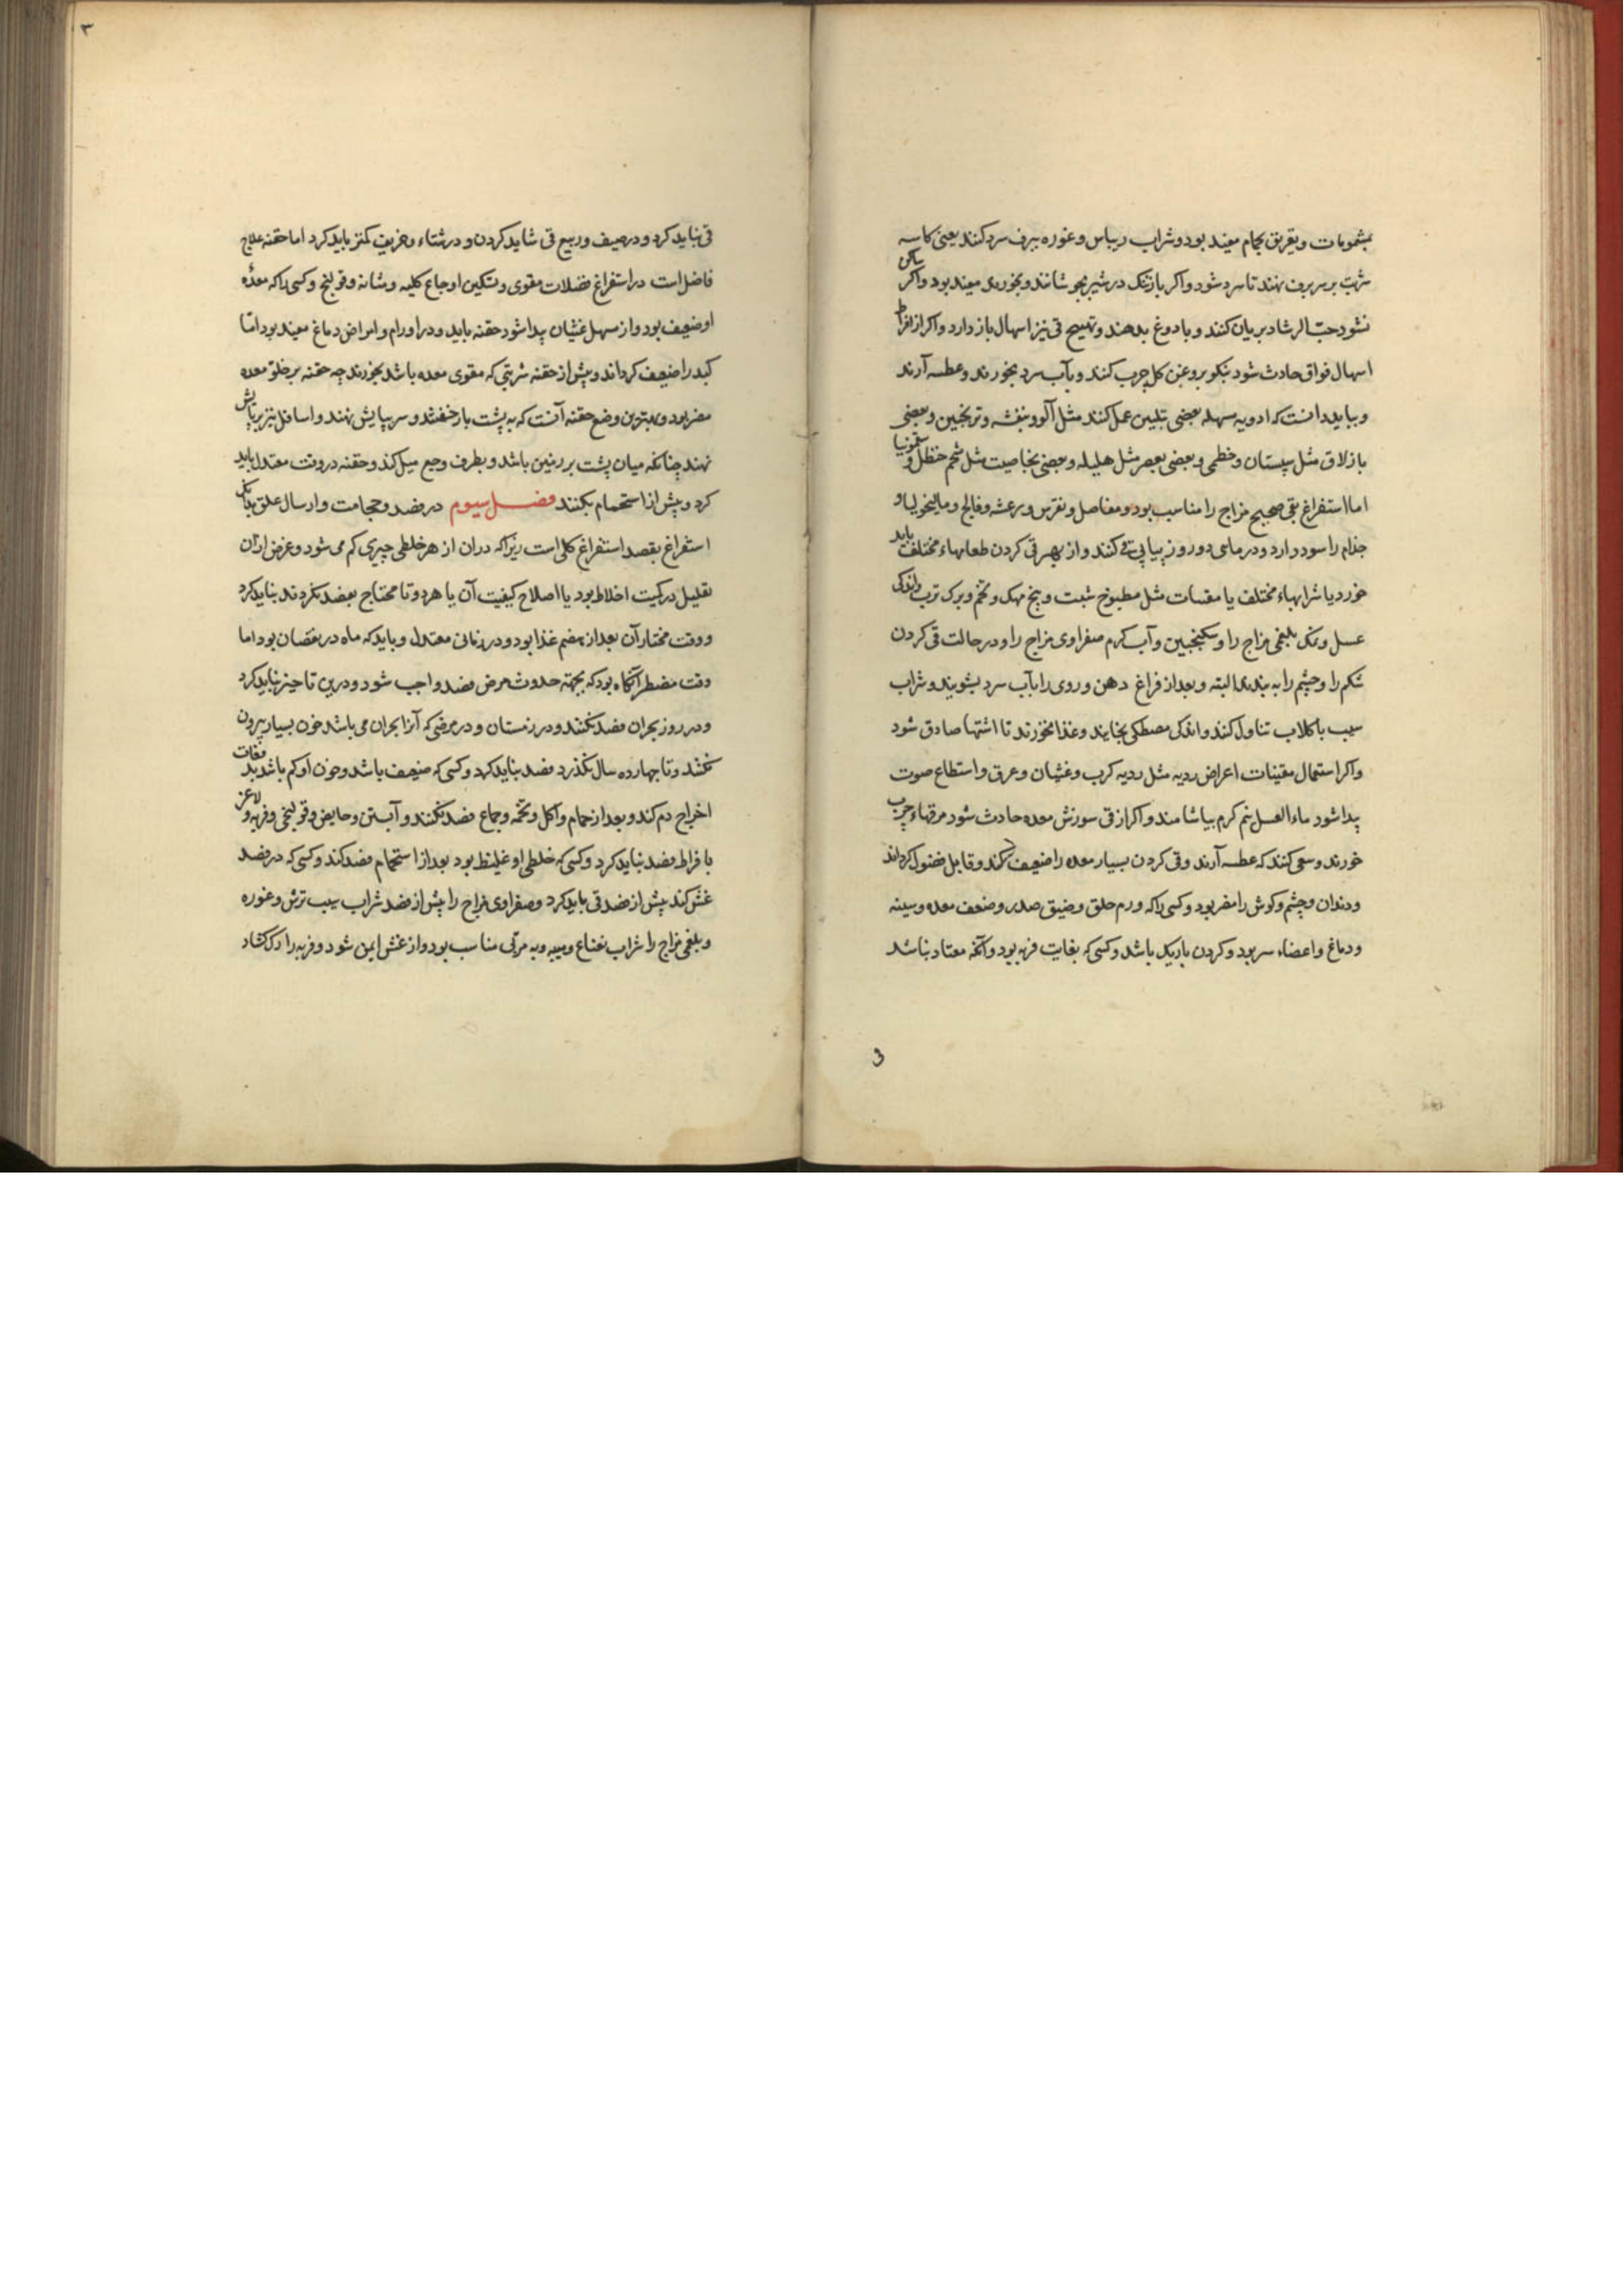 بمشمومات و تعریق بحمام مفید بود و شراب ریباس و غوره ببرف سرد کنند یعنی کاسه
شربت بر سر برف نهند تا سرد شود و اکر بازتنک در شیر بجوشانند و بخورند مفید بود و اکر ساکن
نشود حبّ الرشاد بریان کنند و با دوغ بدهند و تهییج قی نیز اسهال باز دارد و اکر از افراط
اسهال فواق حادث شود بروغن کل چرب کنند و بآب سرد بخورند و عطسه آرند
و بباید دانست که ادویه مسهله بعضی بتلیین عمل کنند مثل آلو و بنفشه و ترنجبین و بعضی
بازلاق مثل سپستان و خطمی و بعضی بعصر مثل هلیله و بعضی بخاصیت مثل شحم حنظل و سقمونیا
اما استفراغ بقی صحیح مزاج را مناسب بود و مفاصل و نقرس و رعشه و فالج و مالیخولیا و
جذام را سود دارد و در ماهی دو روز پیاپی قی کنند و از بهر قی کردن طعامهاء مختلف باید
خورد یا شرابهاء مختلف یا مقیات مثل مطبوخ شبت و بیخ مهک و تخم و برک ترب و اندکی
عسل و نمک بلغمی مزاج را و سکنجبین و آب کرم صفراوی مزاج را و در حالت قی کردن
شکم را و چشم را به بندند البته و بعد از فراغ دهن و روی را بآب سرد بشویند و شراب
سیب با کلاب تناول کنند و اندکی مصطکی بخایند و غذا نخورند تا اشتها صادق شود
و اکر استعمال مقیئات اعراض ردیه مثل ردیه کرب و غثیان و عرق و استطاع صوت
پیدا شود ماء العسل نیم کرم بیاشامند و اکر از قی سوزش معده حادث شود مرقهاء چرب
خورند و سعی کنند که عطسه آرند و قی کردن بسیار معده را ضعیف کند و قابل فضول کرداند
و دندان و چشم و کوش را مضر بود و کسی را که ورم حلق و ضیق صدر و ضعف معده و سینه
و دماغ و اعضاء سر بود و کردن باریک باشد و کسی که بغایت فربه بود و آنکه معتاد نباشد
3
۳
قی نباید کرد و در صیف و ربیع قی شاید کردن و در شتاء و خریف کمتر باید کرد اما حقنه علاج
فاضل است در استفراغ فضلات مقوی و تسکین اوجاع کلیه و مثانه و قولنج و کسی را که معدهٔ
او ضعیف بود و از مسهل غثیان پیدا شود حقنه باید و در اورام و امراض دماغ مفید بود امّا
کبد را ضعیف کرداند و پیش از حقنه شربتی که مقوی معده باشد بخورند چه حقنه بر خلو معده
مضر بود و بهترین وضع حقنه آنست که به پشت باز خفتد و سر ببالش نهند و اسافل نیز ببالش
نهند چنانکه میان پشت بر زمین باشد و بطرف وجع میل کند و حقنه در وقت معتدل باید
کرد و پیش از استحمام بکنند فصل سیوم در فصد و حجامت و ارسال علق بدانک
استفراغ بفصد استفراغ کلی است زیراکه دران از هر خلطی چیزی کم می شود و غرض ازان
تقلیل در کمیت اخلاط بود یا اصلاح کیفیت آن یا هردو تا محتاج بفصد نکردند نباید کرد
و وقت مختار آن بعد از هضم غذا بود و در زمانی معتدل و باید که ماه در نقصان بود اما
وقت مضطر آنکاه بود که بجهته حدوث مرض فصد واجب شود و درین تاخیر نباید کرد
و در روز بحران فصد نکنند و در زمستان و در مرضی که آنرا بحران می باشد خون بسیار بیرون
نکنند و تا چهارده سال نکذرد فصد نباید کرد و کسی که ضعیف باشد و خون او کم باشد بدفعات
اخراج دم کند و بعد از حمام و اکل و تخمه و جماع فصد نکنند و آبستن و حایض و قولنجی و فربه و لاغر
بافراط فصد نباید کرد و کسی که خلطی او غلیظ بود بعد از استحمام فصد کند و کسی که در فصد
غش کند پیش از فصد قی باید کرد و صفراوی مزاج را پیش از فصد شراب سیب ترش و غوره
و بلغمی مزاج را شراب نعناع و میبه و به مربّی مناسب بود و از غش ایمن شود و فربه را رک کشاد